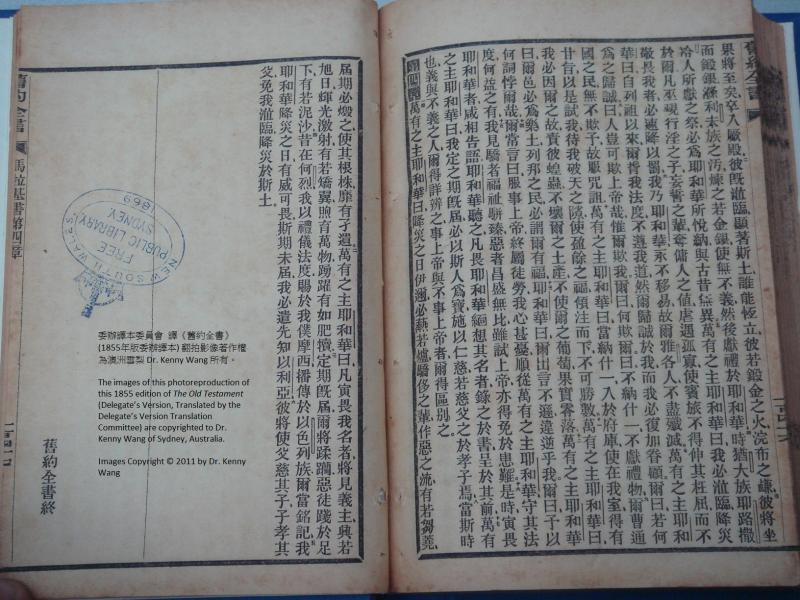 舊約全書
果將至矣卒入厥殿彼既涖臨顯著斯土誰能恆立彼若鍛金之火浣布之鹻彼將坐
而鍛銀滌利未族之污煉之若金銀使無不義然後獻禮於耶和華時猶大族耶路撒
冷人所獻之祭必為耶和華所悅納與古昔無異萬有之主耶和華曰我必涖臨降災
於爾凡巫覡行淫之子妄誓之輩奪傭人之值虐遇孤寡使賓旅不得伸其枉屈而不
敬畏我者必速降以罰我乃耶和華永不移易故爾雅各人不盡殲滅萬有之主耶和
華曰自列祖以來爾背我法度不遵我道然爾歸誠於我而我必復加眷顧爾曰若何
為之歸誠曰人豈可欺上帝哉惟爾欺我爾曰何欺爾曰不納什一不獻禮物爾曹通
國之民無不欺予故服咒詛萬有之主耶和華曰當納什一入於府庫使在我室得有
甘旨以是試我待我破天之隙使盈餘之福傾注而下不可勝數萬有之主耶和華曰
我必因爾之故責彼蝗蟲不壞爾之土產不使爾之葡萄果實零落萬有之主耶和華
曰爾邑必為樂土列邦之民必謂爾有福耶和華曰爾出言不遜違逆乎我爾曰予以
何詞悖爾哉爾常言曰服事上帝終屬徒勞我心甚憂順從萬有之主耶和華守其法
度何益之有我見驕者福祉駢臻惡者昌盛無比雖試上帝亦得免於患難是時寅畏
耶和華者咸相告語耶和華聽之凡畏耶和華緬想其名者錄之於書呈於其前萬有
之主耶和華曰我定之期既屆必以斯人為寶施以仁慈若慈父之於孝子焉當斯時
也義與不義之人爾得詳辨之事上帝與不事上帝者爾得區別之
萬有之主耶和華曰降災之日伊邇必爇若爐驕侈之輩作惡之流有若芻蕘
屆期必燬之使其根株靡有孑遺萬有之主耶和華曰凡寅畏我名者將見義主興若
旭日輝光激射有若矯翼煦育萬物踴躍有如肥犢定期既屆爾將蹂躪惡徒踐於足
下有若泥沙昔在何烈我以禮儀法度賜於我僕摩西播傳於以色列族爾當銘記我
耶和華降災之日有威可畏斯期未屆我必遣先知以利亞彼將使父慈其子子孝其
父免我涖臨降災於斯土
舊約全書終
舊約全書 馬拉基書第四章
NEW SOUTH WALES
FREE
PUBLIC LIBRARY
SYDNEY
1869
委辦譯本委員會 譯《舊約全書》
(1855年版委辦譯本) 翻拍影像著作權
為澳洲雪梨 Dr. Kenny Wang 所有。
The images of this photoreproduction of
this 1855 edition of The Old Testament
(Delegate's Version, Translated by the
Delegate's Version Translation
Committee) are copyrighted to Dr.
Kenny Wang of Sydney, Australia.
Images Copyright © 2011 by Dr. Kenny
Wang